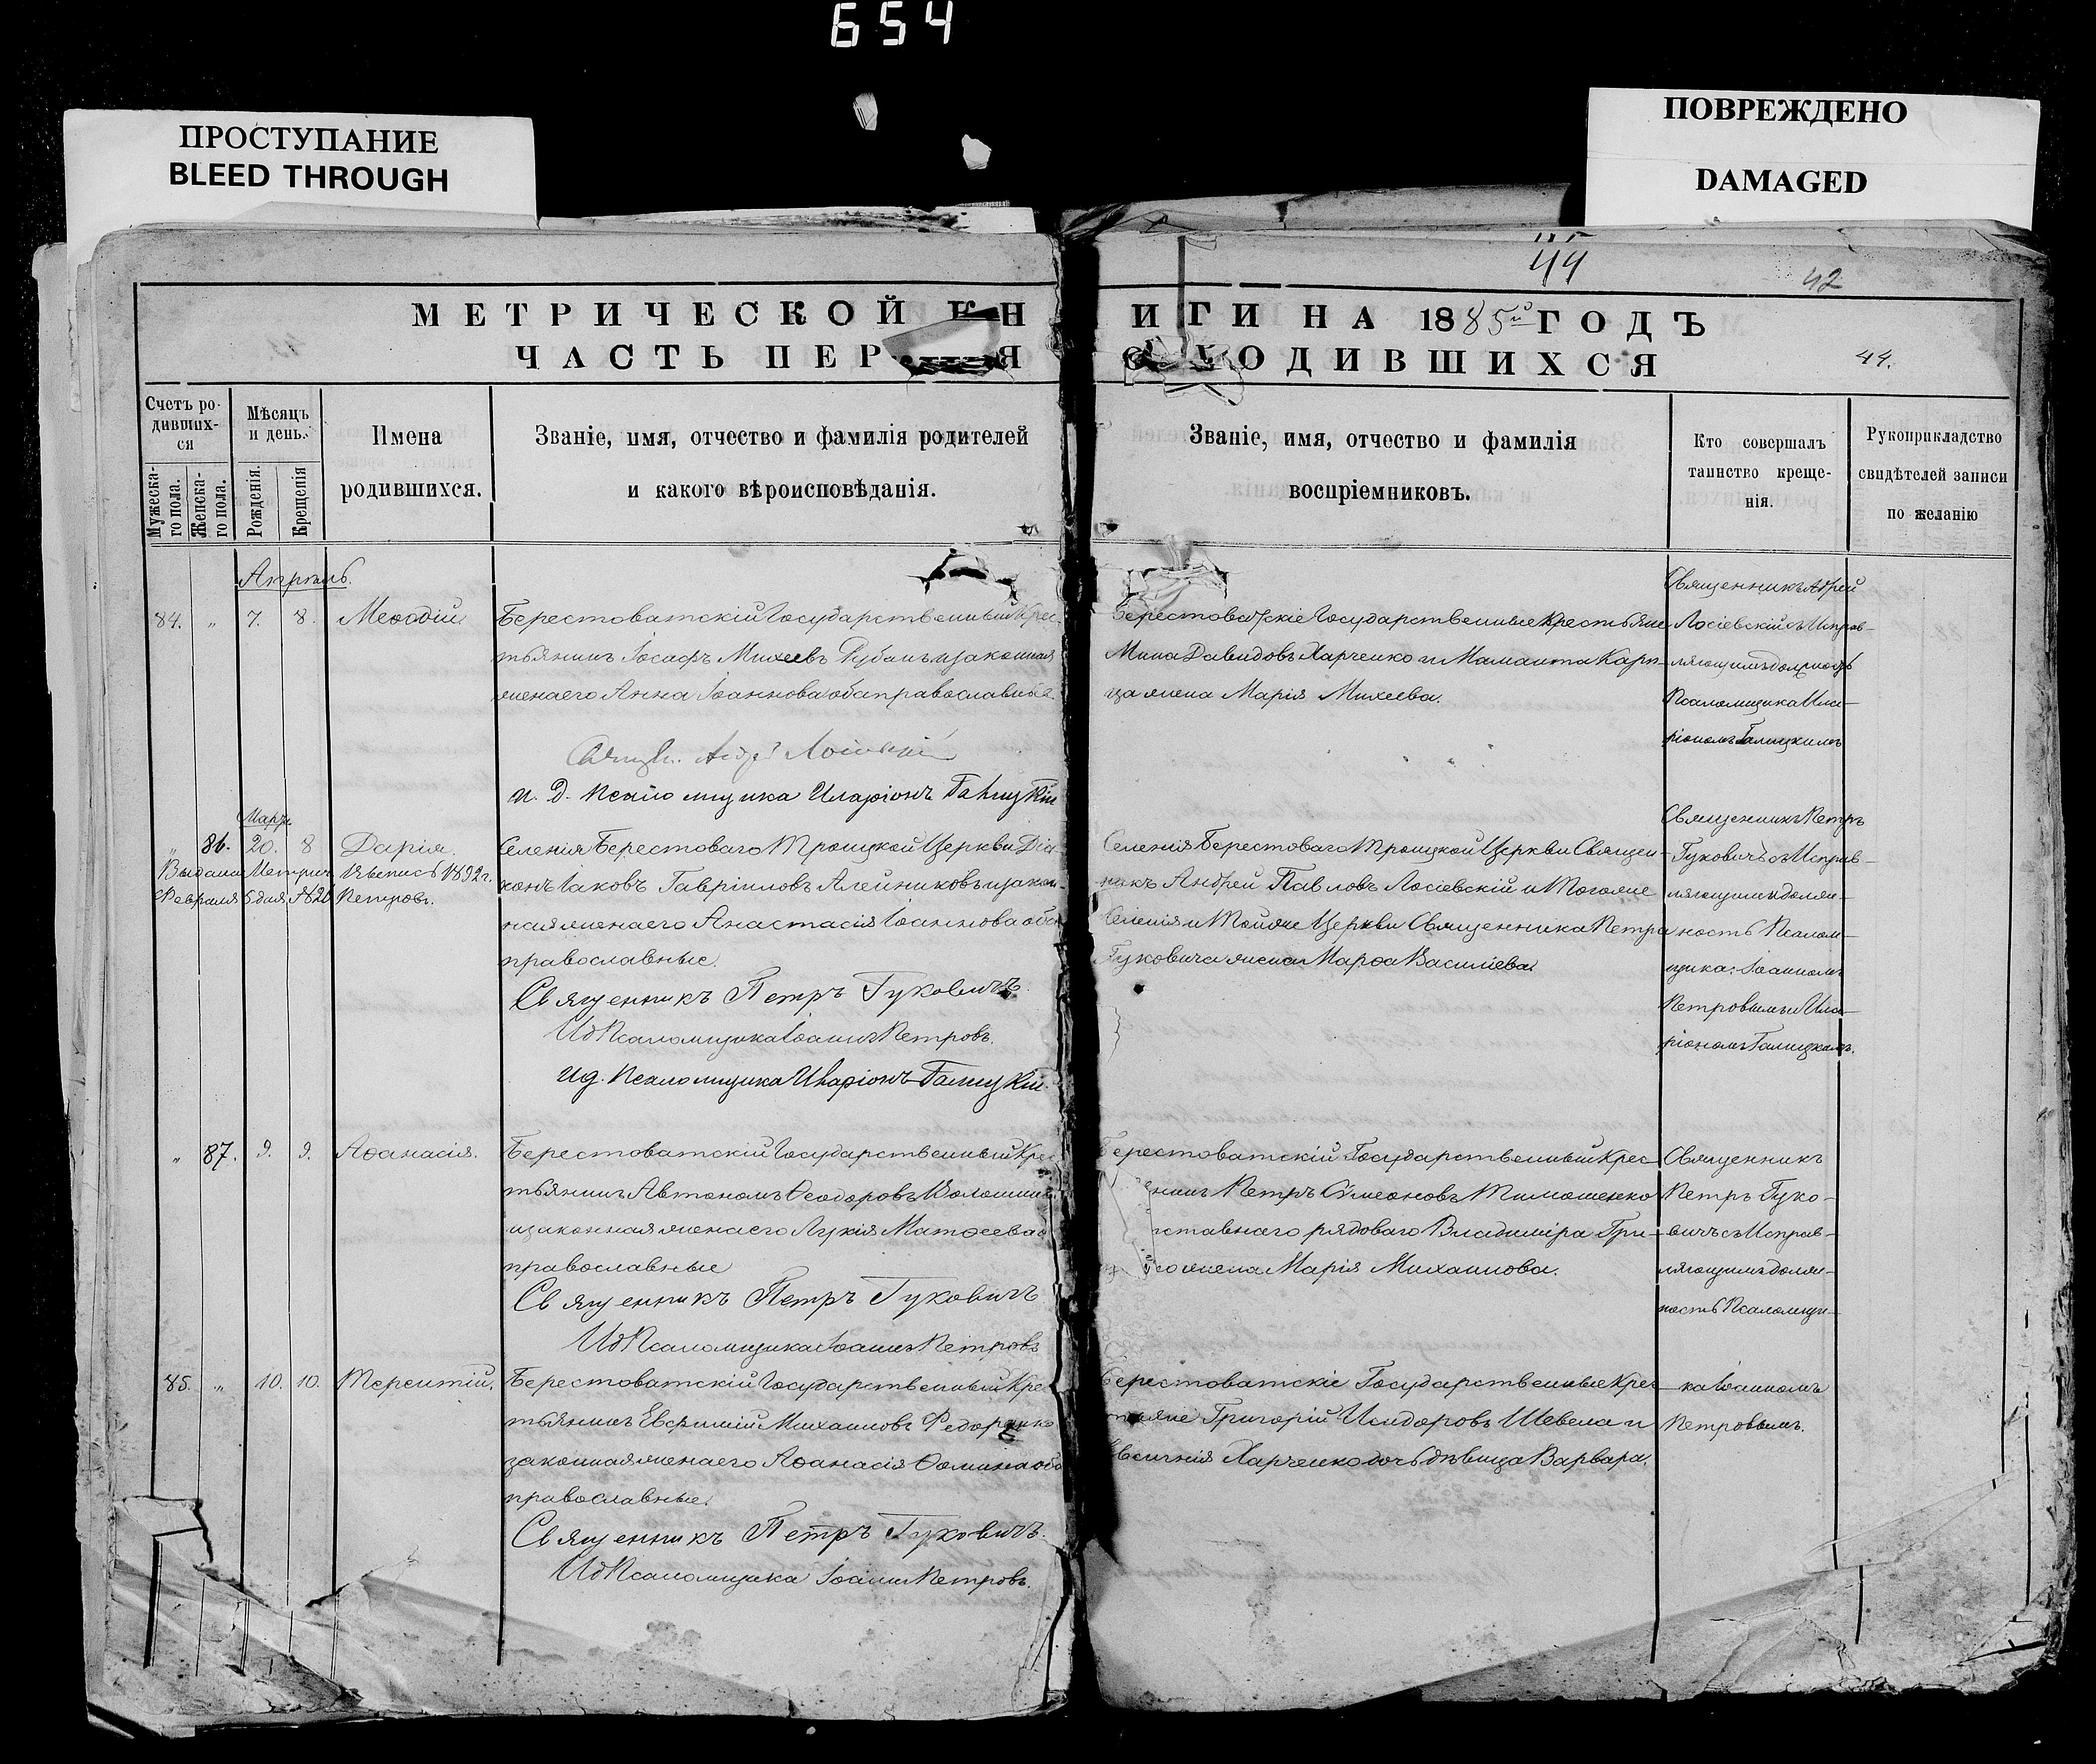 654
ПРОСТУПАНИЕ
BLEED THROUGH
ПОВРЕЖДЕНО
DAMAGED
44
42
МЕТРИЧЕСКОЙ КН
ИГИ НА 1885й ГОДЪ
ЧАСТЬ ПЕР Я
О ОДИВШИХСЯ
44.
Счетъ ро-
дивших-
ся
Мужеска-
го пола.
Женска-
го пола.
Мѣсяцъ
и день.
Рожденія.
Крещенія
Имена
родившихся.
Званіе, имя, отчество и фамилія родителей
и какого вѣроисповѣданія.
Званіе, имя, отчество и фамилія
воспріемниковъ.
Кто совершалъ
таинство креще-
нія.
Рукоприкладство
свидѣтелей записи
по желанію
Апрѣль.
84. „ 7. 8. Меѳодій
Берестоватскій Государственный Крес-
тьянинъ Іосафъ Михеевъ изаконная
женаего Анна Іоаннова обаправославные.
Андрей Лосіевскій
и. д. Псаломщика Иларіонъ Галицкій
Берестоватскіе Государственные Крестьяне
Мина Давидовъ Харченко и Маманта Карп-
ца жена Марія Михеева.
Священникъ Андрей
Лосіевскій съ Исправ-
ляющимъ должность
Псаломщика Ила-
ріономъ Галицкимъ
Мартъ
„ 86. 20. 8 Дарія.
Выдана Метрич. 1892 г.
Февраля 5 дня № 20 Петровъ.
Селенія Берестоваго Троицкой Церкви Діа-
конъ Іаковъ Гавріиловъ Алейниковъ изакон-
ная женаего Анастасія Іоаннова оба
православные.
Священникъ Петръ Гуковичъ.
ИдПсаломщика Іоаннъ Петровъ.
ид. Псаломщика Иларіонъ Галицкій.
Селенія Берестоваго Троицкой Церкви Священ-
никъ Андрей Павловъ Лосіевскій и Тогоже
Селенія и Тойже Церкви Священника Петра
Гуковича жена Марѳа Василіева.
Священникъ Петръ
Гуковичъ съ Исправ-
ляющими долж-
ность Псалом-
щика: Іоанномъ
Петровымъ и Ила-
ріономъ Галицкимъ.
„ 87. 9. 9. Аѳанасія.
Берестоватскій Государственный Крес-
тьянинъ Автономъ Ѳеодоровъ Волошинъ
изаконная женаего Лукія Матѳеева
православные
Священникъ Петръ Гуковичъ
ИдПсаломщика Іоаннъ Петровъ
Берестоватскій Государственный Крес-
нинъ Петръ Симеоновъ Тимошенко
ставнаго рядоваго Владиміра Гри-
жена Марія Михаилова.
Священникъ
Петръ Гуко-
вичъ съ Исправ-
ляющимъ долж-
ность Псаломщи-
85. „ 10. 10. Терентій.
Берестоватскій Государственный Крес-
тьянинъ Евфимій Михаиловъ Федоренко
законная женаего Аѳанасія Ѳомина оба
православные.
Священникъ Петръ Гуковичъ.
ИдПсаломщика Іоаннъ Петровъ.
Берестоватскіе Государственные Крес-
тьяне Григорій Исидоровъ Шевела и
Евсигнія Харченко дочь дѣвица Варвара.
ка Іоанномъ
Петровымъ.